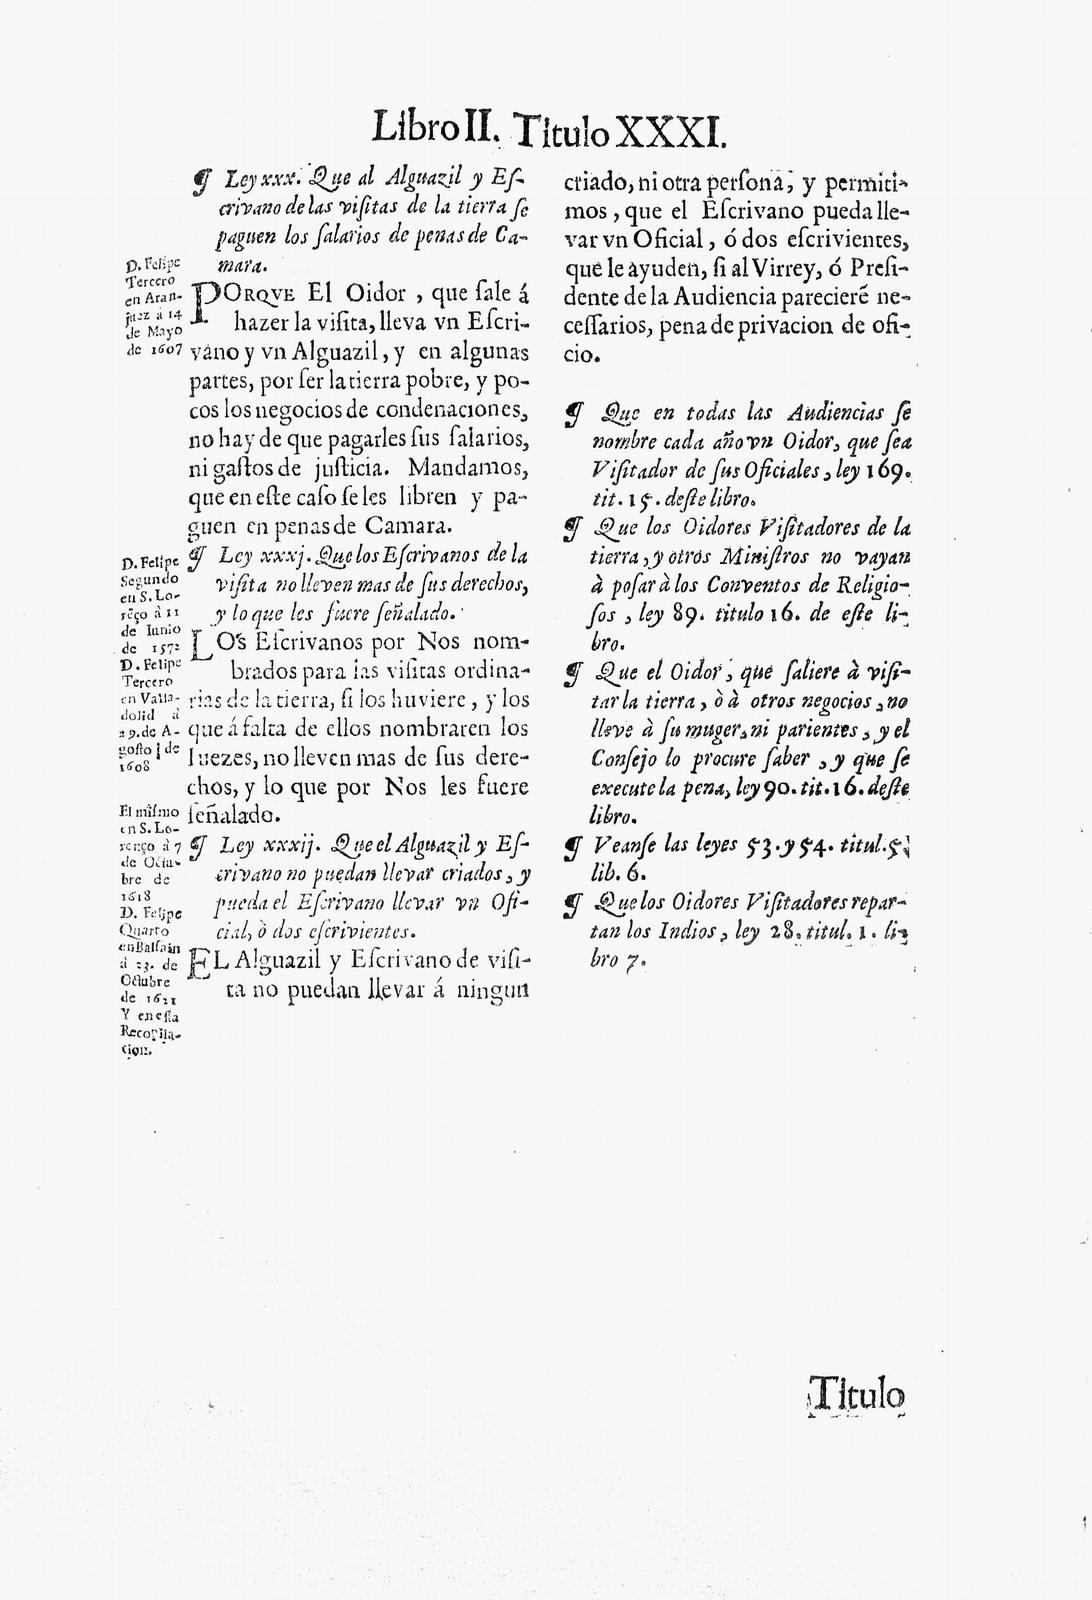 Libro II. Titulo XXXI.
¶ Ley xxx. Que al Alguazil y Eſ-
crivano de las viſitas de la tierra ſe
paguen los ſalarios de penas de Ca-
mara.
D. Felipe
Tercero
en Aran-
juez à 14
de Mayo
de 1607
PORQVE El Oidor, que ſale á
hazer la viſita, lleva vn Eſcri-
vano y vn Alguazil, y en algunas
partes, por ſer la tierra pobre, y po-
cos los negocios de condenaciones,
no hay de que pagarles ſus ſalarios,
ni gaſtos de juſticia. Mandamos,
que en eſte caſo ſe les libren y pa-
guen en penas de Camara.
¶ Ley xxxj. Que los Eſcrivanos de la
viſita no lleven mas de ſus derechos,
y lo que les fuere ſeñalado.
D. Felipe
Segundo
en S. Lo-
rẽço à 11
de Iunio
de 1572
D. Felipe
Tercero
en Valla-
dolid à
29. de A-
goſto de
1608
LOs Eſcrivanos por Nos nom-
brados para las viſitas ordina-
rias de la tierra, ſi los huviere, y los
que á falta de ellos nombraren los
Iuezes, no lleven mas de ſus dere-
chos, y lo que por Nos les fuere
ſeñalado.
¶ Ley xxxij. Que el Alguazil y Eſ-
crivano no puedan llevar criados, y
pueda el Eſcrivano llevar vn Ofi-
cial, ò dos eſcrivientes.
El miſmo
en S. Lo-
renço à 7
de Octu-
bre de
1618
D. Felipe
Quarto
en Balſain
à 23. de
Octubre
de 1621
Y en eſta
Recopila-
cion.
EL Alguazil y Eſcrivano de viſi-
ta no puedan llevar á ningun
criado, ni otra perſona; y permiti-
mos, que el Eſcrivano pueda lle-
var vn Oficial, ó dos eſcrivientes,
que le ayuden, ſi al Virrey, ó Preſi-
dente de la Audiencia pareciere ne-
ceſſarios, pena de privacion de ofi-
cio.
¶ Que en todas las Audiencias ſe
nombre cada año vn Oidor, que ſea
Viſitador de ſus Oficiales, ley 169.
tit. 15. deſte libro.
¶ Que los Oidores Viſitadores de la
tierra, y otros Miniſtros no vayan
à poſar à los Conventos de Religio-
ſos, ley 89. titulo 16. de eſte li-
bro.
¶ Que el Oidor, que ſaliere à viſi-
tar la tierra, ò à otros negocios, no
lleve à ſu muger, ni parientes, y el
Conſejo lo procure ſaber, y que ſe
execute la pena, ley 90. tit. 16. deſte
libro.
¶ Veanſe las leyes 53. y 54. titul. 5.
lib. 6.
¶ Que los Oidores Viſitadores repar-
tan los Indios, ley 28. titul. 1. li-
bro 7.
Titulo